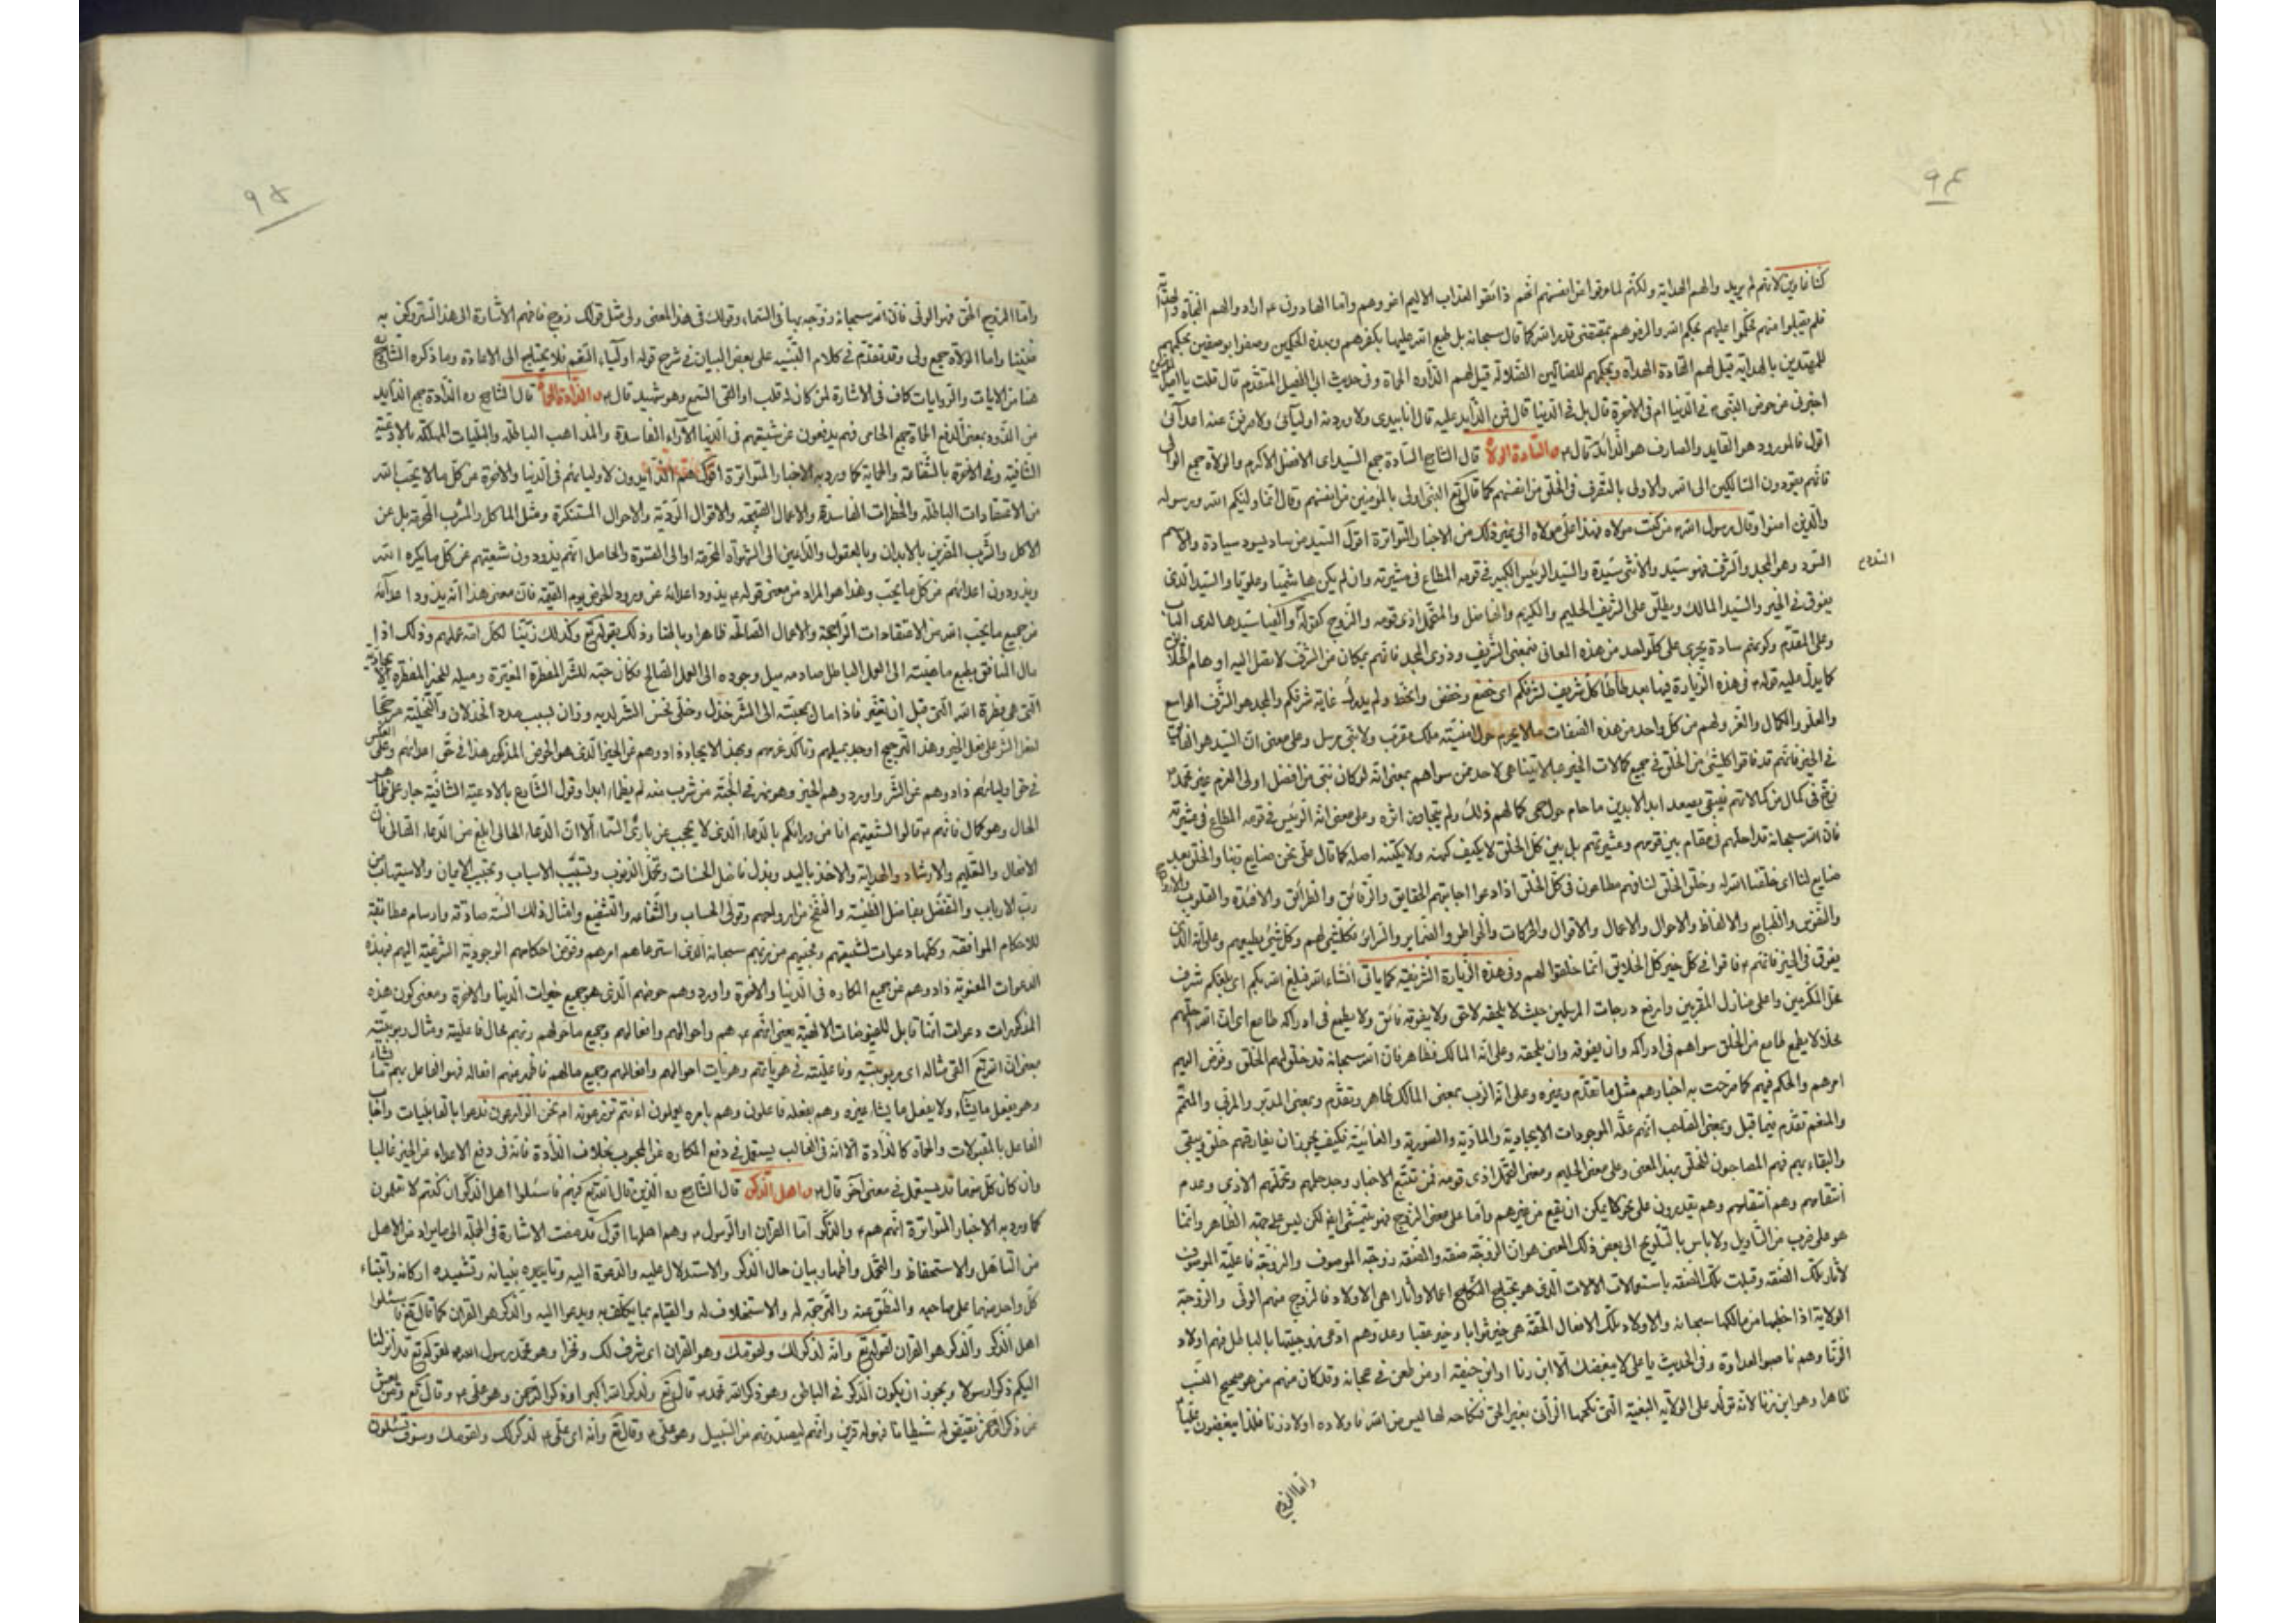 ٩٤
كنا غاوين لانهم لم يريدوا لهم الهداية ولكنهم لما عرفوا من انفسهم انهم ذائقوا العذاب الاليم اغروهم واما الهادون ع ارادوا لهم النجاة
فلم يقبلوا منهم فحكموا عليهم بحكم الله والزموهم بمقتضى قدر الله كما قال سبحانه بل طبع الله عليها بكفرهم وبهذه الحكمين وصفوا بوصفين بحكمهم
للمهتدين بالهداية قيل لهم القادة الهداة وبحكمهم للضالين الضلالة قيل لهم الذادة الحماة وفى حديث ابى الطفيل المتقدم قال قلت يا امير المؤمنين
اخبرنى عن حوض النبى ص فى الدنيا ام فى الاخرة قال بل فى الدنيا قال فمن الذايد عليه قال انا بيدى ولاوردنه اوليائى ولاصرفن عنه اعدائى
اقول فالمورود هو القايد والصارف هو الذائد قال ع والسادة الولاة قال الشارح السادة جمع السيد اى الافضل الاكرم والولاة جمع الوالى
فانهم يقودون السالكين الى الله والاولى بالتصرف فى الخلق من انفسهم كما قال تع النبى اولى بالمؤمنين من انفسهم وقال انما وليكم الله ورسوله
والذين امنوا وقال رسول الله ص من كنت مولاه فهذا على مولاه الى غير ذلك من الاخبار المتواترة اقول السيد من ساد يسود سيادة والاسم
السودد
السؤد وهو المجد والشرف فهو سيد والانثى سيدة والسيد الرئيس الكبير فى قومه المطاع فى عشيرته وان لم يكن هاشميا وعلويا والسيد الذى
يفوق فى الخير والسيد المالك ويطلق على الشريف الحليم والكريم والفاضل والمتحمل اذى قومه والزوج كقوله والفيا سيدها لدى الباب
وعلى المقدم وكونهم سادة يجرى على كل واحد من هذه المعانى فبمعنى الشريف وذوى المجد فانهم بمكان من الشرف لا تصل اليه اوهام الخلائق
كما يدل عليه قوله ع فى هذه الزيارة فيما بعد طأطأ كل شريف لشرفكم اى خضع وخفض وانحط ولم يدرك غاية شرفكم والمجد هو الشرف الواسع
والعلو والكمال والعز ولهم من كل واحد من هذه الصفات مالا يحوم حول افنيته ملك مقرب ولا نبى مرسل وعلى معنى ان السيد هو الفائق
فى الخير فانهم قد فاقوا كل شئ من الخلق فى جميع كمالات الخير بما لا يتناهى لاحد من سواهم بمعنى انه لو كان نبى من افضل اولى العزم غير محمد ص
فان الله سبحانه قد احلهم فى مقام بين قومهم وعشيرتهم بل بين كل الخلق لا يكيف كنهه ولا يكتنه اصله كما قال على نحن صنايع ربنا والخلق بعد
صنايع لنا اى خلقنا الله له وخلق الخلق لنا فهم مطاعون فى كل الخلق اذا دعوا اجابتهم الحقايق والرقائق والطرائق والافئدة والقلوب والارواح
والنفوس والطبايع والالفاظ والاحوال والاعمال والاقوال والحركات والخواطر والضماير والسرائر فكل شئ لهم وكل شئ يطيعهم وعلى انه الذى
يفوق فى الخير فانهم ع فاقوا فى كل خير كل الخلايق انما خلقوا لهم وفى هذه الزيارة الشريفة كما ياتى انشاء الله فبلغ الله بكم اى بلغكم اشرف
محل المكرمين واعلى منازل المقربين وارفع درجات المرسلين حيث لا يلحقه لاحق ولا يفوقه فائق ولا يطمع فى ادراكه طامع اى ان الله احلهم
محلا لا يطمع طامع من الخلق سواهم فى ادراكه وان يفوقه وان يلحقه وعلى انه المالك فظاهر فان الله سبحانه قد خلق لهم الخلق وفوض اليهم
امرهم والحكم فيهم كما صرحت به اخبارهم مثل ما تقدم وغيره وعلى انه الرب بمعنى المالك ظاهر وتقدم وبمعنى المدبر والمربى والمتمم
والمنعم تقدم فيما قبل وبمعنى الصاحب انهم علة الموجودات الايجادية والمادية والصورية والغائية فكيف يجوز ان يفارقهم خلق ويبقى
والبقاء بهم فهم المصاحبون للخلق بهذا المعنى وعلى معنى الحليم ومعنى المتحمل اذى قومه فمن تتبع الاخبار وجد حلمهم وتحملهم الاذى وعدم
انتقامهم وهم يقدرون على نحو كما يمكن ان يقع من غيرهم واما على معنى الزوج فهو يتمشى ايضا لكن ليس على جهة الظاهر وانما
هو على ضرب من التاويل ولا باس بالتلويح الى بعض ذلك المعنى هو ان الزوجة صفة والصفة زوجة الموصوف والزوجة فاعلية الموصوف
لآثار تلك الصفة وقبلت تلك الصفة باستعمالات الالات الذى هو بمنزلة النكاح اعمالا وآثارا هى الاولاد فالزوج منهم الولى والزوجة
الولاية اذا خطبها من مالكها سبحانه والاولاد تلك الافعال الحقة هى خير ثوابا وخير عقبا وعدوهم ادعى زوجيتها بالباطل فهم اولاد
الزنا وهم ناصبوا العداوة وفى الحديث يا على لا يبغضك الا ابن زنا او ابن حيضة او من طعن فى عجانه وقد كان منهم من هو صحيح النسب
ظاهرا وهو ابن زنا لانه تولد على الولاية البغية التى نكحها الزانى بغير الحق فنكاحه لها ليس من الله فاولاده اولاد زنا فلذا يبغضون عليا ع
واما الزوج
٩٥
واما الزوج الحق فهو الولى فان الله سبحانه زوجه بها فى السماء وقولك فى هذا المعنى ولى مثل قولك زوج فافهم الاشارة الى هذا السر وكن به
ضنينا واما الولاة جمع ولى وقد تقدم فى كلام التنبيه على بعض البيان فى شرح قوله اولياء النعم فلا يحتاج الى الاعادة وما ذكره الشارح
هنا من الايات والروايات كاف فى الاشارة لمن كان له قلب او القى السمع وهو شهيد قال ع والذادة الحماة قال الشارح ره الذادة جمع الذايد
من الذود بمعنى الدفع الحماة جمع الحامى فهم يدفعون عن شيعتهم فى الدنيا الآراء الفاسدة والمذاهب الباطلة والبليات المهلكة بالادعية
الشافية وفى الاخرة بالشفاعة والحماية كما ورد به الاخبار المتواترة اقول هم الذايدون لاوليائهم فى الدنيا والاخرة من كل ما لا يحب الله
من الاعتقادات الباطلة والخطرات الفاسدة والاعمال القبيحة والاقوال الردية والاحوال المستنكرة ومثل الماكل والمشرب المحرمة بل عن
الاكل والشرب المضرين بالابدان وبالعقول والداعين الى الشهوات المحرمة او الى القسوة والحاصل انهم يذودون شيعتهم عن كل ما يكره الله
ويذودون اعدائهم من كل ما يحب وهذا هو المراد من معنى قوله ع يذود اعدائه عن ورود الحوض يوم القيمة فان معنى هذا انه يذود اعدائه
من جميع ما يحب الله من الاعتقادات الراجحة والاعمال الصالحة ظاهرا وباطنا وذلك بقوله تع وكذلك زينا لكل امة عملهم وذلك اذا
مال المنافق بطبع ماهيته الى العمل الباطل صادمه ميل وجوده الى العمل الصالح فكان حبه للشر المفطرة المغيرة وميله للخير المفطرة
التى هى فطرة الله التى قبل ان تغير فاذا مال بمحبته الى الشر خذل وخلى نحس الشر لديه وزان لسبب مدد الخذلان والتخلية مرجحا
لفعل الشر على فعل الخير وهذا الترجيح اوجد بميلهم وتاكد عزمهم وبهذا الايجاد ذادوهم عن الخير الذى هو الحوض المذكور هذا فى حق اعدائهم وعلى العكس
فى حق اوليائهم ذادوهم عن الشر واوردوهم الخير وهو نهر فى الجنة من شرب منه لم يظمأ ابدا وقول الشارح بالادعية الشافية جار على ظاهر
الحال وهو كمال فانهم ع قالوا لشيعتهم انا من ورائكم بالدعاء الذى لا يحجب عن بارئ السماء الا ان الدعاء الحالى ابلغ من الدعاء القالى فان
الافعال والتعليم والارشاد والهداية والاخذ باليد وبذل فاضل الحسنات وتحمل الذنوب وتسبيب الاسباب وتجنيب الاميان والاستيهاب من
رب الارباب والتفضل بفاضل الطينة والنفخ من ارواحهم وتولى الحساب والشفاعة والتشفيع وامثال ذلك السنة صادقة وارسام مطابقة
للاحكام الموافقة وكلها دعوات لشيعتهم ومحبيهم من ربهم سبحانه الذى استرعاهم امرهم وفوض احكامهم الوجودية الشرعية اليهم فبهذه
الدعوات المعنوية ذادوهم عن جميع المكاره فى الدنيا والاخرة واوردوهم حوضهم الذى هو جميع خيرات الدنيا والاخرة ومعنى كون هذه
المذكورات دعوات انها قابل للفيوضات الالهية يعنى انهم ع هم واحوالهم وافعالهم وجميع ما حولهم وربهم محال فاعليته ومثال ربوبيته
بمعنى ان الله تع القى مثاله اى ربوبيته وفاعليته فى هوياتهم وهويات احوالهم وافعالهم وجميع مالهم فاظهر منهم افعاله فهو الفاعل بهم ما شاء
وهو يفعل ما يشاء ولا يفعل ما يشاء غيره وهم بفعله فاعلون وهم بامره يعملون ءانتم تزرعونه ام نحن الزارعون فدعوا بالقابليات واجاب
الفاعل بالمقبولات والحماة كالذادة الا انه فى الغالب يستعمل فى دفع المكاره عن المحبوب بخلاف الذادة فانه فى دفع الاعداء عن الخير غالبا
وان كان كل منهما قد يستعمل فى معنى آخر قال ع واهل الذكر قال الشارح ره الذين قال الله تع فيهم فاسئلوا اهل الذكر ان كنتم لا تعلمون
كما ورد به الاخبار المتواترة انهم هم ع والذكر اما القران او الرسول ص وهم اهلها اقول قد مضت الاشارة فى الجملة الى ما يراد من الاهل
من التاهل والاستحفاظ والتحمل واظهار وبيان حال الذكر والاستدلال عليه والدعوة اليه وتاييده بنيانه وتشييده اركانه وابتناء
كل واحد منهما على صاحبه والنطق عنه والترجمة له والاستخلاف له والقيام بما يكلف به ويدعوا اليه والذكر هو القران كما قال تع فاسئلوا
اهل الذكر والذكر هو القران لقوله تع وانه لذكر لك ولقومك وهو القران اى شرف لك وفخرا وهو محمد رسول الله ص لقوله تع قد انزلنا
اليكم ذكرا رسولا ويجوز ان يكون الذكر فى الباطن وهو ذكر الله محمد ص قال تع ولذكر الله اكبر او ذكر الرحمن وهو على ع وقال تع ومن يعش
عن ذكر الرحمن نقيض له شيطانا فهو له قرين وانهم ليصدونهم عن السبيل وهو على ع وقال تع وانه اى على ع لذكر لك ولقومك وسوف تسئلون